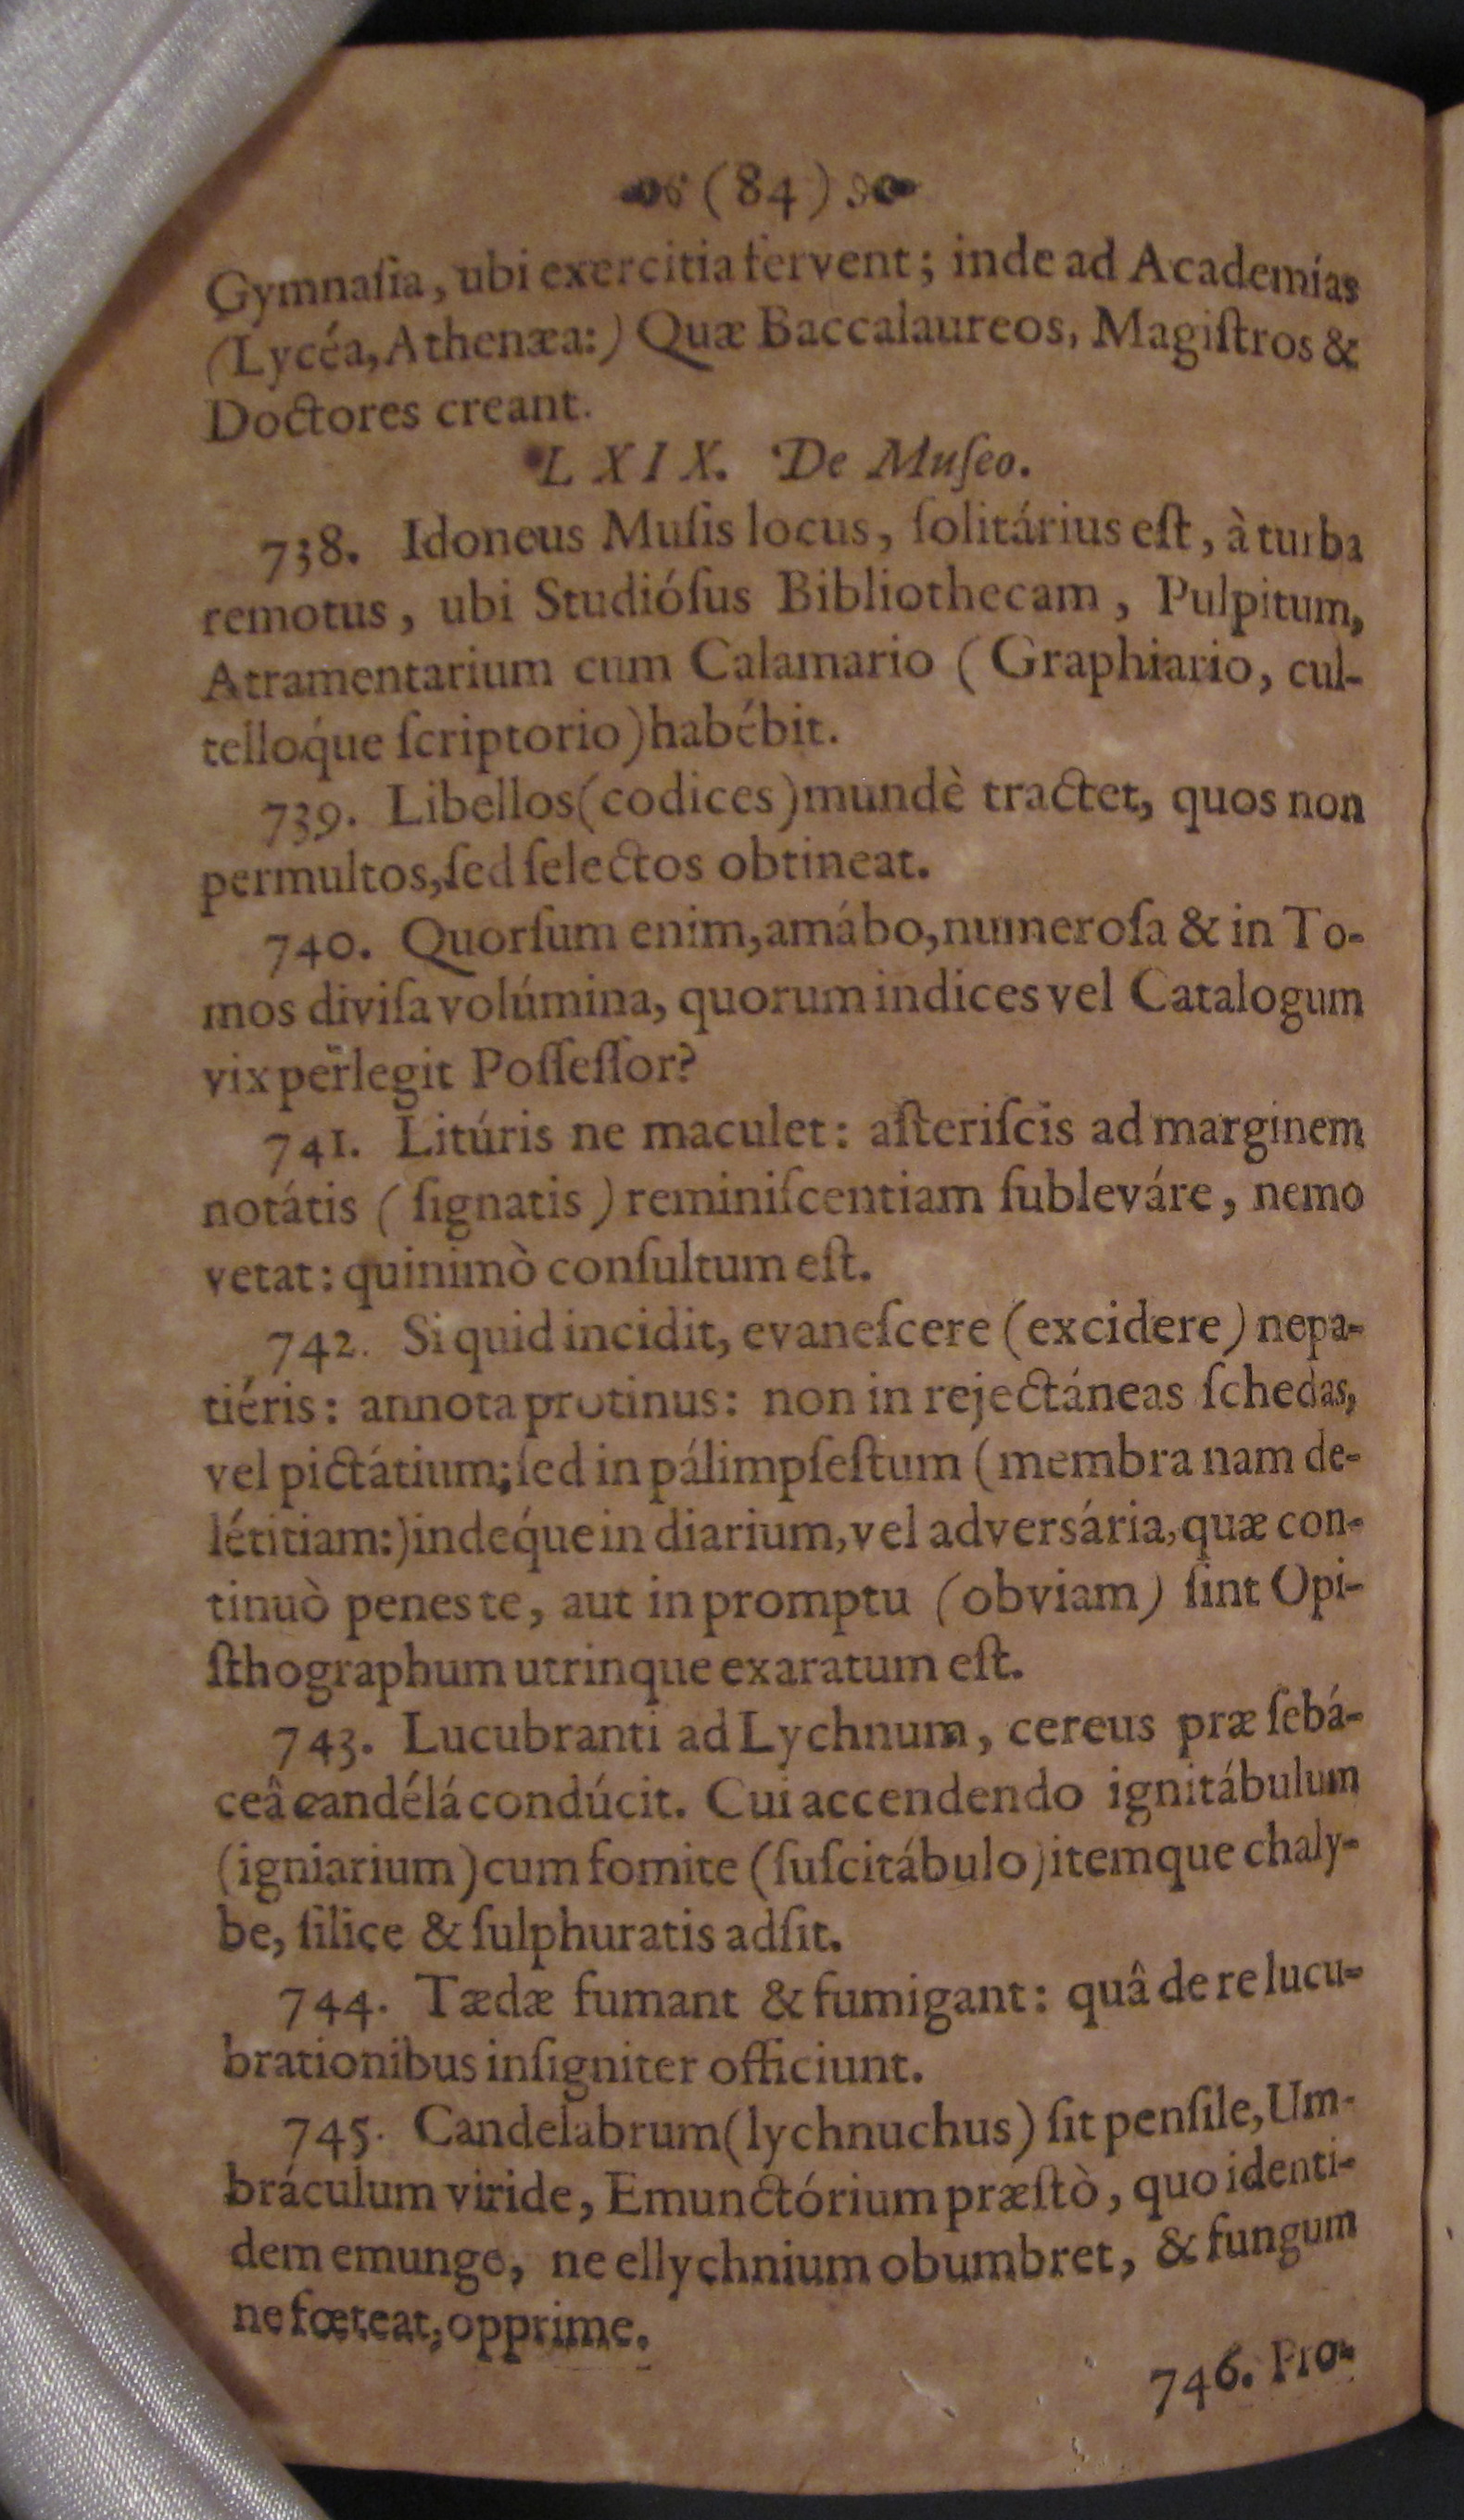 (84)
Gymnaſia, ubi exercitia fervent; inde ad Academías
(Lycéa, Athenæa:) Quæ Baccalaureos, Magiſtros &
Doctores creant.
LXIX. De Muſeo.
738. Idoneus Muſis locus, ſolitárius eſt, à turba
remotus, ubi Studióſus Bibliothecam, Pulpitum,
Atramentarium cum Calamario (Graphiario, cul-
telloq́ue ſcriptorio) habébit.
739. Libellos (codices) mundè tractet, quos non
permultos, ſed ſelectos obtineat.
740. Quorſum enim, amábo, numeroſa & in To-
mos diviſa volúmina, quorum indices vel Catalogum
vix perlegit Poſſeſſor?
741. Litúris ne maculet: aſteriſcis ad marginem
notátis (ſignatis) reminiſcentiam ſubleváre, nemo
vetat: quinimò conſultum eſt.
742. Si quid incidit, evaneſcere (excidere) nepa-
tiéris: annota protinus: non in rejectáneas ſchedas,
vel pictátium; ſed in pálimpſeſtum (membra nam de-
létitiam:) indeq́ue in diarium, vel adversária, quæ con-
tinuò penes te, aut in promptu (obviam) ſint Opi-
ſthographum utrinque exaratum eſt.
743. Lucubranti ad Lychnum, cereus præ ſebá-
ceâ candélá condúcit. Cui accendendo ignitábulum
(igniarium) cum fomite (ſuſcitábulo) itemque chaly-
be, ſilice & ſulphuratis adſit.
744. Tædæ fumant & fumigant: quâ de re lucu-
brationibus inſigniter officiunt.
745. Candelabrum (lychnuchus) ſit penſile, Um-
bráculum viride, Emunctórium præſtò, quo identi-
dem emunge, ne ellychnium obumbret, & fungum
ne fœteat, opprime.
746. Pro-